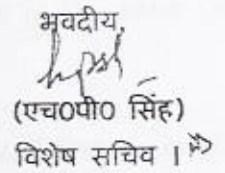 भवदीय,
(एच0पी0 सिंह)
विशेष सचिव ।